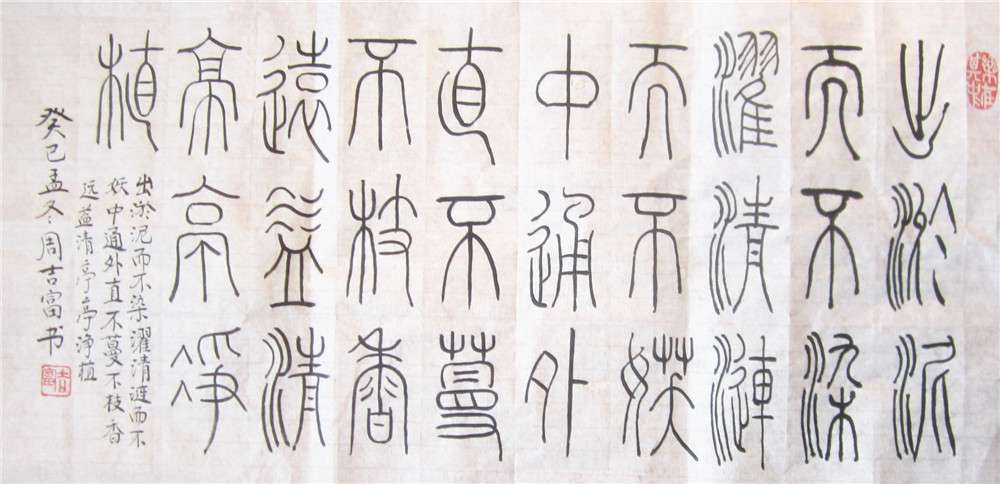 出淤泥
而不染
濯清漣
而不妖
中通外
直不蔓
不枝香
遠益清
亭亭净
植
出淤泥而不染濯清涟而不
妖中通外直不蔓不枝香
远益清亭亭净植
癸巳孟冬周吉富书
吉富